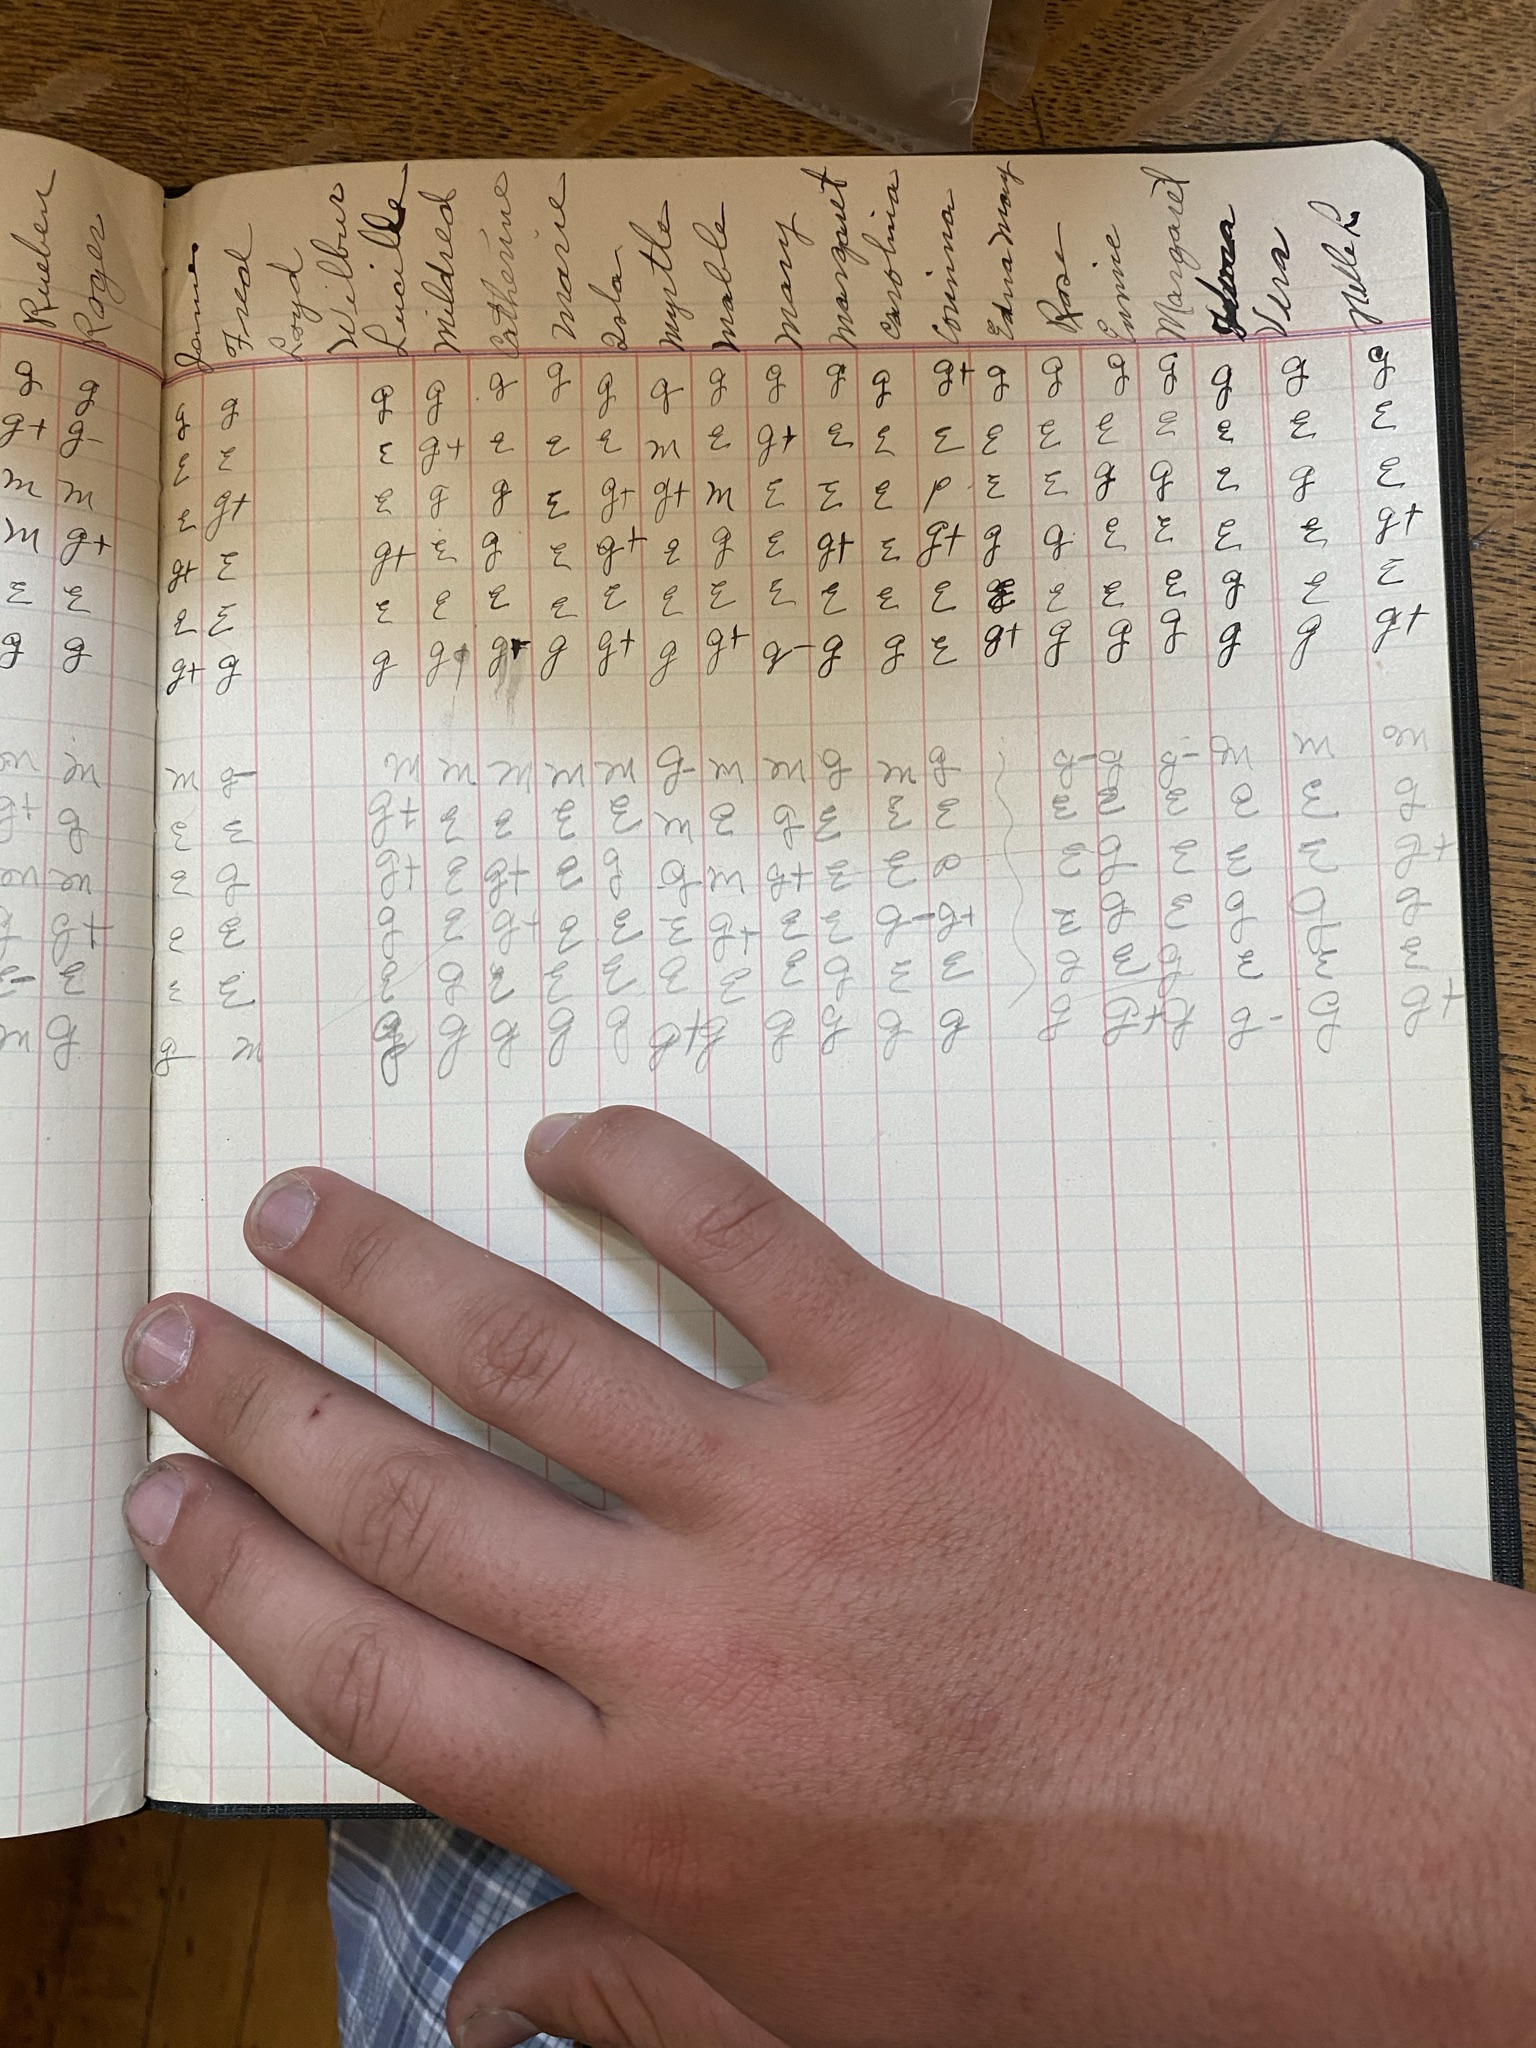 Rueben Roger James Fred Loyd Wilbur Lucille Mildred Catherine Marie Iola Myrtle Mable Mary Margaret Carolina Corinna Edna May Rose Emmie Margaret Vera
g g g g g g g g g g g g g g g+ g g g g g g g
g+ g- E E E g+ E E E m E g+ E E E E E E E E E E
m m E g+ E g g E g+ g+ m E E E p E E g g E g E
m g+ g+ E g+ E g E g+ E g E g+ E g+ g g E E E E g+
E E E E E E E E E E E E E E E E E E g E E
g g g+ g g g+ g+ g g+ g g+ g- g g E g+ g g g g g g+
m m m g- m m m m m g- m m g m g g- g g- m m m
g+ g E E g+ E E E E m E g E E E E E E E E g
m m E g g+ E g+ E g g m g+ E E E g E E E g+
g+ E E g E g+ E E E g+ E E g- g+ E g E g g g
E- E E E E g E E E E E E g E E g E g E E E
m g g m g g g g g g+ g g g g g g g+ g g- g g+